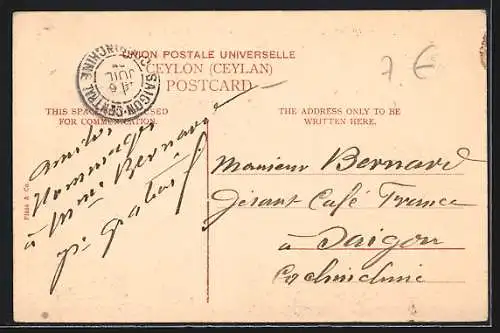 UNION POSTALE UNIVERSELLE
CEYLON (CEYLAN)
POSTCARD
SAIGON-CENTRAL
COCHINCHINE
6
JUIL
7 €
THIS SPACE USED
FOR COMMUNICATION.
THE ADDRESS ONLY TO BE
WRITTEN HERE.
Plâté & Co.
hommages
à Mme Bernard
Monsieur Bernard
Gérant Café France
à Saigon
Cochinchine